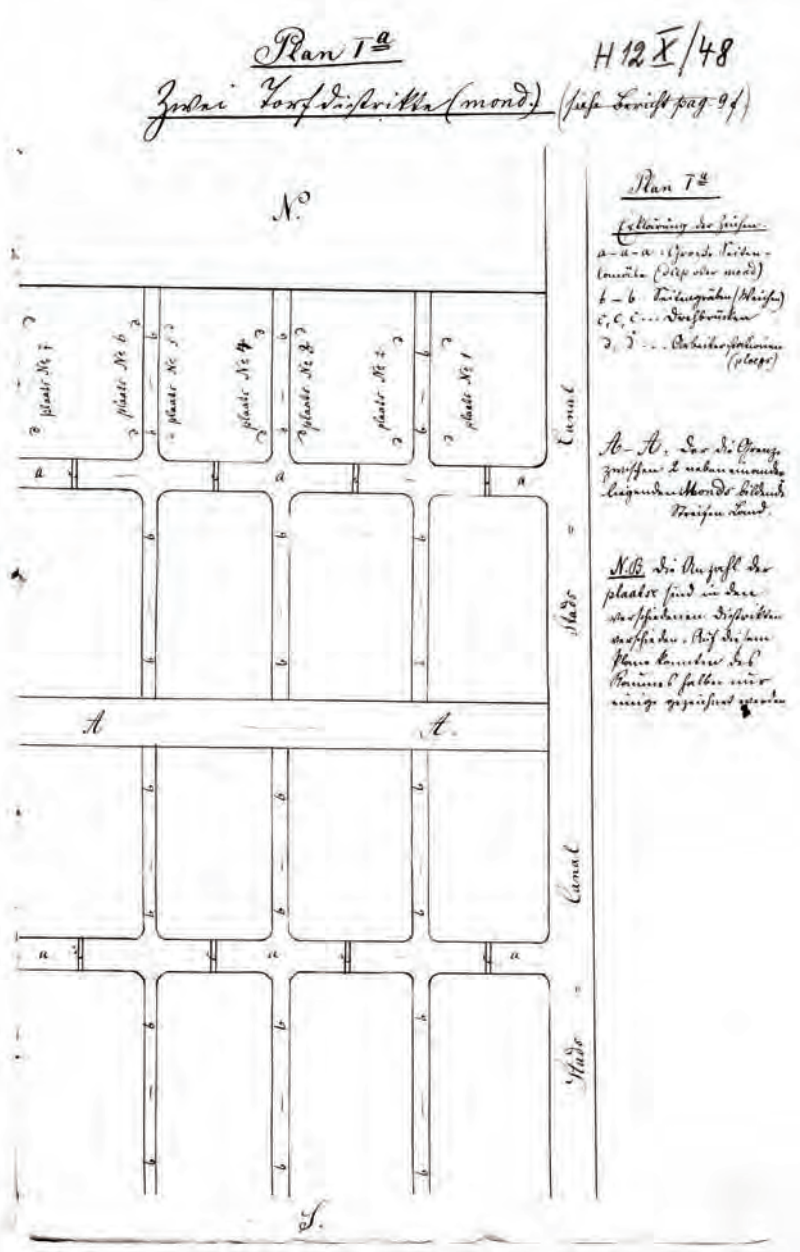 Plan Iª
H 12 X/48
Zwei Torfdistrikte (mond.) (siehe Bericht pag. 9 f)
N.
plaats № 7
plaats № 6
plaats № 5
plaats № 4
plaats № 3
plaats № 2
plaats № 1
a
a
a
b
b
b
b
b
b
Stads = Canal
A
A.
b
b
b
b
b
b
a
a
a
Stads = Canal
b
b
b
b
b
b
S.
Plan Iª
Erklärung der Zeichen.
a-a-a : Große Seiten-
canäle (diep oder mond)
b - b . Seitengräben (Weichen)
c, c, c ... Drehbrücken
d, d ... Arbeiterstationen
(plaats)
A - A. Der die Grenze
zwischen 2 nebeneinander
liegenden Monds bildende
Streifen Land.
N.B. Die Anzahl der
plaatse sind in den
verschiedenen Distrikten
verschieden. Auf diesem
Plane konnten des
Raumes halber nur
einige gezeichnet werden